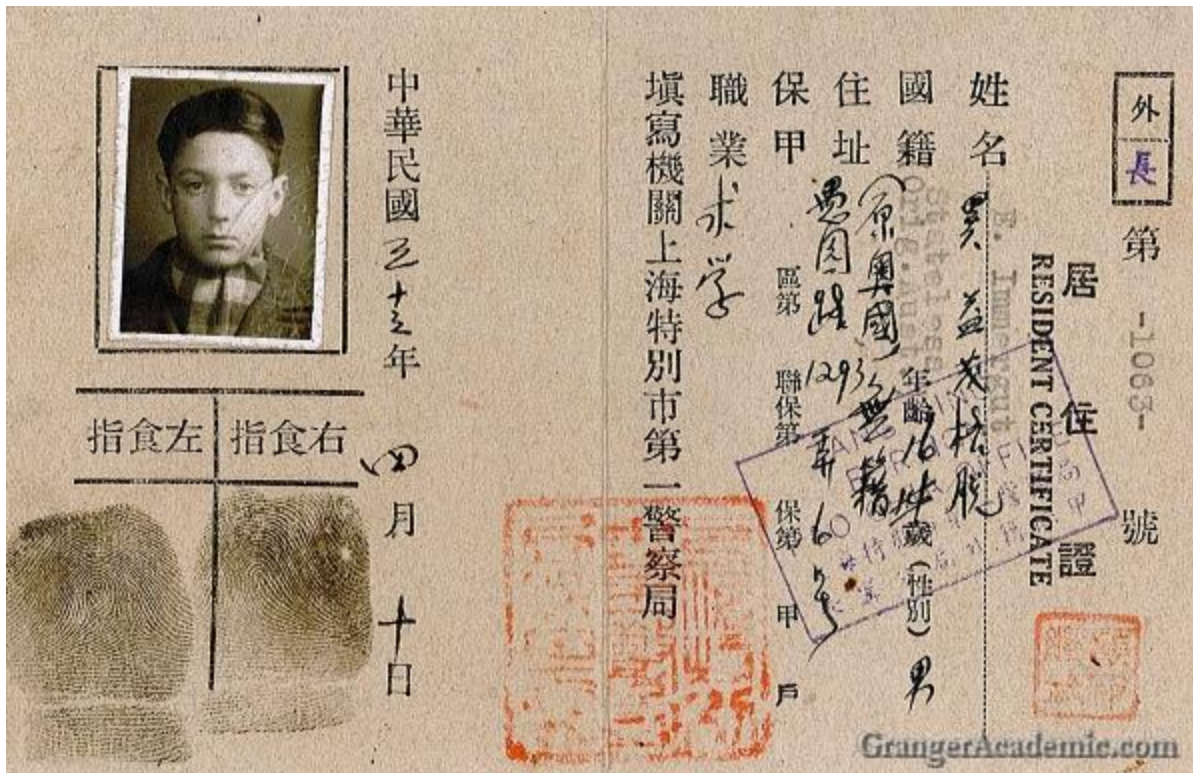 外
長
第 -1063- 號
居住證
RESIDENT CERTIFICATE
E. Immergut
姓名 益茂格脫
Stateless
orig.Aust
國籍 (原奧國) 無籍 年齡 16 歲 (性別) 男
住址 愚園路 1293 弄 6 号
保甲 區第 聯保第 保第 甲 戶
職業 求学
填寫機關上海特別市第一警察局
中華民國 三十三年 四月 十日
右食指
左食指
GrangerAcademic.com